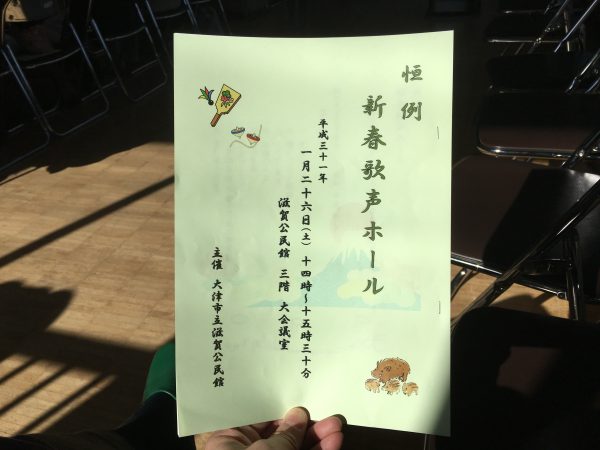 恒例
新春歌声ホール
平成三十一年
一月二十六日(土) 十四時~十五時三十分
滋賀公民館 三階 大会議室
主催 大津市立滋賀公民館